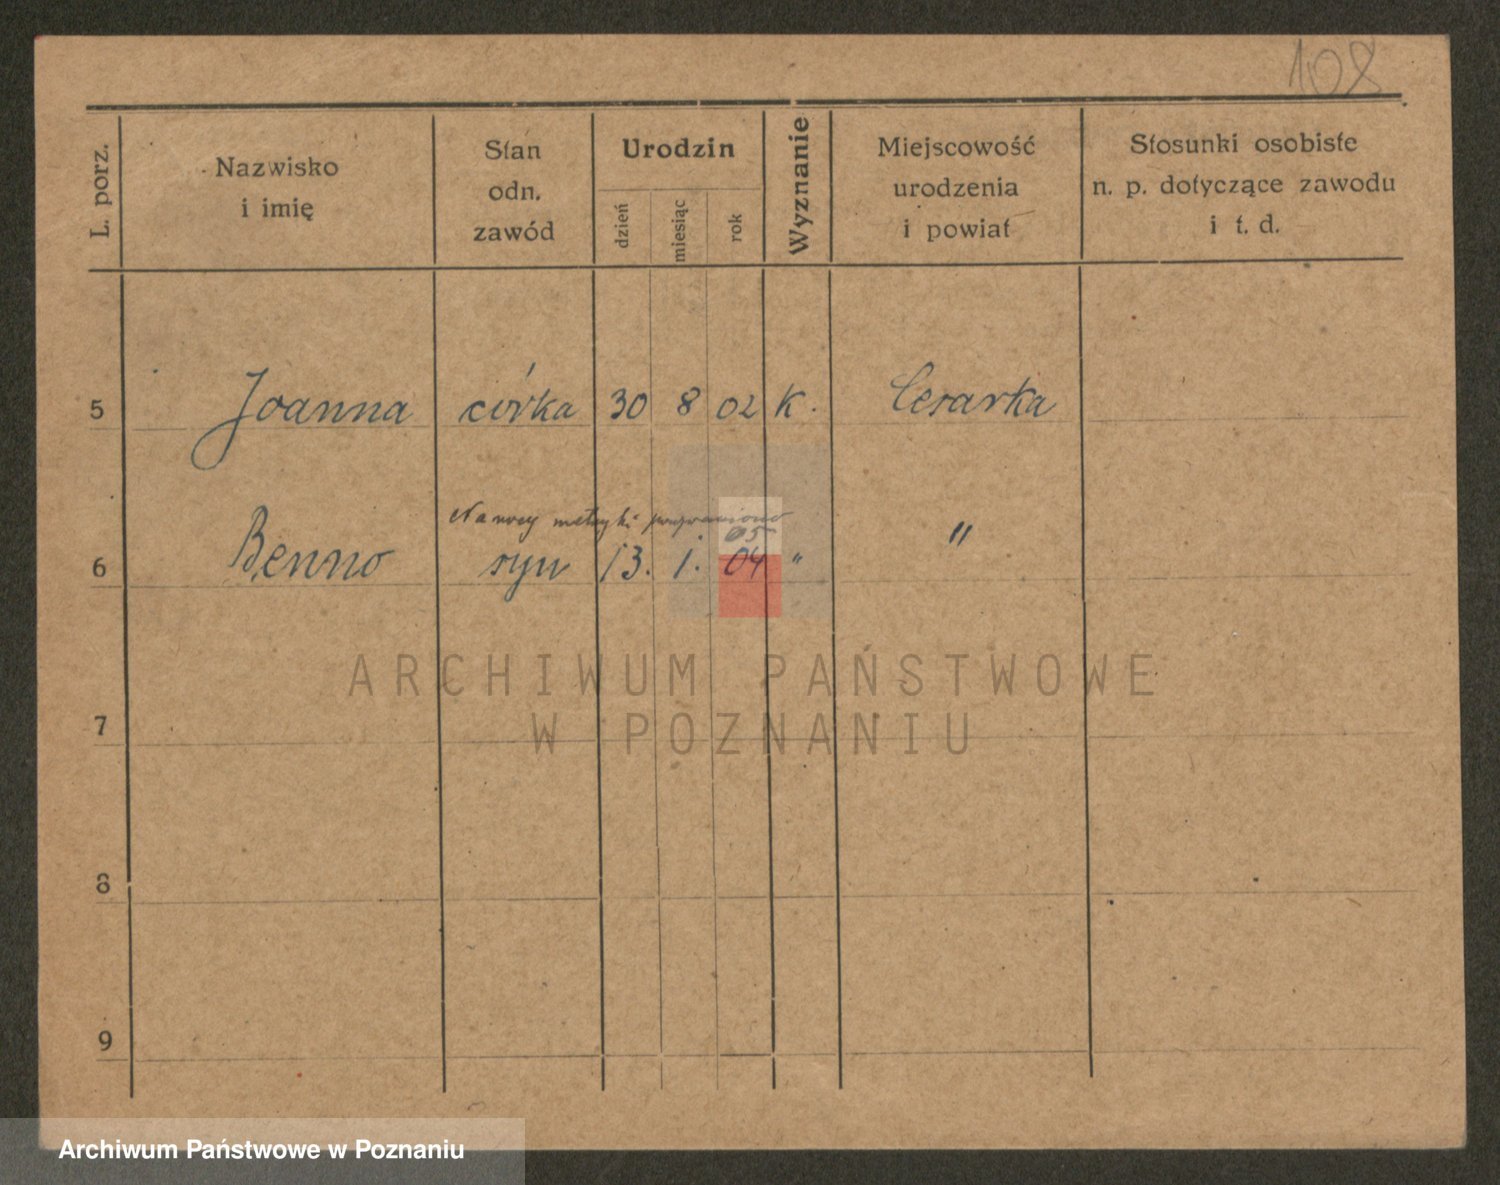 108
L. porz.
Nazwisko
i imię
Stan
odn.
zawód
Urodzin
dzień
miesiąc
rok
Wyznanie
Miejscowość
urodzenia
i powiat
Stosunki osobiste
n. p. dotyczące zawodu
i t. d.
5 Joanna córka 30 8 02 K. Cerarka
Na mocy metryki poprawiono
05
6 Benno syn 13. 1. 04 " "
7
8
9
ARCHIWUM PAŃSTWOWE
W POZNANIU
Archiwum Państwowe w Poznaniu